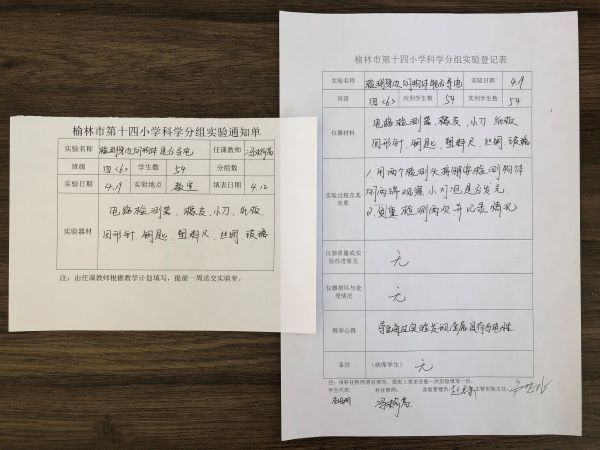 榆林市第十四小学科学分组实验通知单
实验名称 检测身边的物体是否导电 任课教师
班级 四〈6〉 学生数 54 分组数
实验日期 4.19 实验地点 教室 填表日期 4.12
实验器材
电路检测器、橡皮、小刀、纸板
回形针、钥匙、塑料尺、丝绸、玻璃
注:由任课教师根据教学计划填写,提前一周送交实验室。
榆林市第十四小学科学分组实验登记表
实验名称 检测身边的物体能否导电 实验日期 4.19
班级 四〈6〉 应到学生数 54 实到学生数 54
仪器材料
电路检测器、橡皮、小刀、纸板
回形针、钥匙、塑料尺、丝绸、玻璃
实验过程及其效果
1.用两个检测头接触被检测物体
的两端观察小灯泡是否发光
2.重复检测两次并记录情况
仪器质量或实验改进意见 无
仪器损坏与处理情况 无
教学心得 学生通过实验发现金属具有导电性
备注 (缺席学生) 无
注:由科任教师课后填写,演组上要求没做一次实验填写一份。
学生代表: 科任教师: 实验管理员: 主管实验主任: